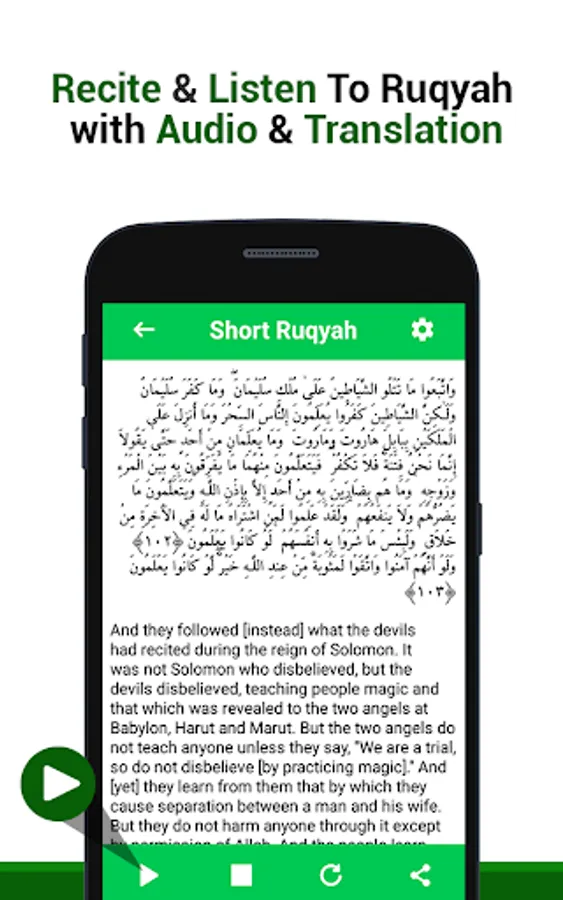 Recite & Listen To Ruqyah
with Audio & Translation
Short Ruqyah
وَاتَّبَعُوا مَا تَتْلُو الشَّيَاطِينُ عَلَىٰ مُلْكِ سُلَيْمَانَ ۖ وَمَا كَفَرَ سُلَيْمَانُ
وَلَٰكِنَّ الشَّيَاطِينَ كَفَرُوا يُعَلِّمُونَ النَّاسَ السِّحْرَ وَمَا أُنزِلَ عَلَى
الْمَلَكَيْنِ بِبَابِلَ هَارُوتَ وَمَارُوتَ وَمَا يُعَلِّمَانِ مِنْ أَحَدٍ حَتَّىٰ يَقُولَا
إِنَّمَا نَحْنُ فِتْنَةٌ فَلَا تَكْفُرْ فَيَتَعَلَّمُونَ مِنْهُمَا مَا يُفَرِّقُونَ بِهِ بَيْنَ الْمَرْءِ
وَزَوْجِهِ وَمَا هُم بِضَارِّينَ بِهِ مِنْ أَحَدٍ إِلَّا بِإِذْنِ اللَّهِ وَيَتَعَلَّمُونَ مَا
يَضُرُّهُمْ وَلَا يَنفَعُهُمْ وَلَقَدْ عَلِمُوا لَمَنِ اشْتَرَاهُ مَا لَهُ فِي الْآخِرَةِ مِنْ
خَلَاقٍ وَلَبِئْسَ مَا شَرَوْا بِهِ أَنفُسَهُمْ لَوْ كَانُوا يَعْلَمُونَ ﴿١٠٢﴾
وَلَوْ أَنَّهُمْ آمَنُوا وَاتَّقَوْا لَمَثُوبَةٌ مِّنْ عِندِ اللَّهِ خَيْرٌ لَّوْ كَانُوا يَعْلَمُونَ
﴿١٠٣﴾
And they followed [instead] what the devils
had recited during the reign of Solomon. It
was not Solomon who disbelieved, but the
devils disbelieved, teaching people magic and
that which was revealed to the two angels at
Babylon, Harut and Marut. But the two angels do
not teach anyone unless they say, "We are a trial,
so do not disbelieve [by practicing magic]." And
[yet] they learn from them that by which they
cause separation between a man and his wife.
But they do not harm anyone through it except
by permission of Allah. And the people learn